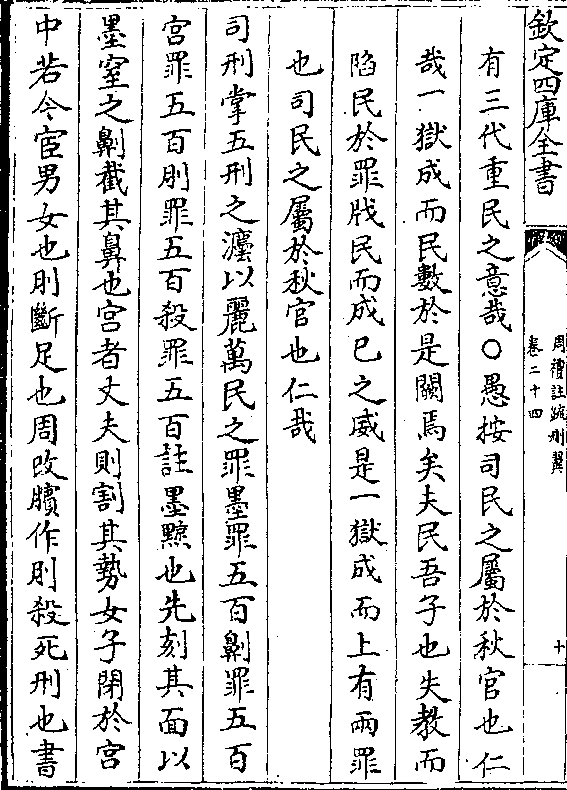 欽定四庫全書
周禮註疏刪翼
卷二十四
十
有三代重民之意哉○愚按司民之屬於秋官也仁
哉一獄成而民數於是闕焉矣夫民吾子也失教而
陷民於罪戕民而成已之威是一獄成而上有兩罪
也司民之屬於秋官也仁哉
司刑掌五刑之灋以麗萬民之罪墨罪五百劓罪五百
宮罪五百刖罪五百殺罪五百註墨黥也先刻其面以
墨窒之劓截其鼻也宮者丈夫則割其勢女子閉於宮
中若今宦男女也刖斷足也周改臏作刖殺死刑也書